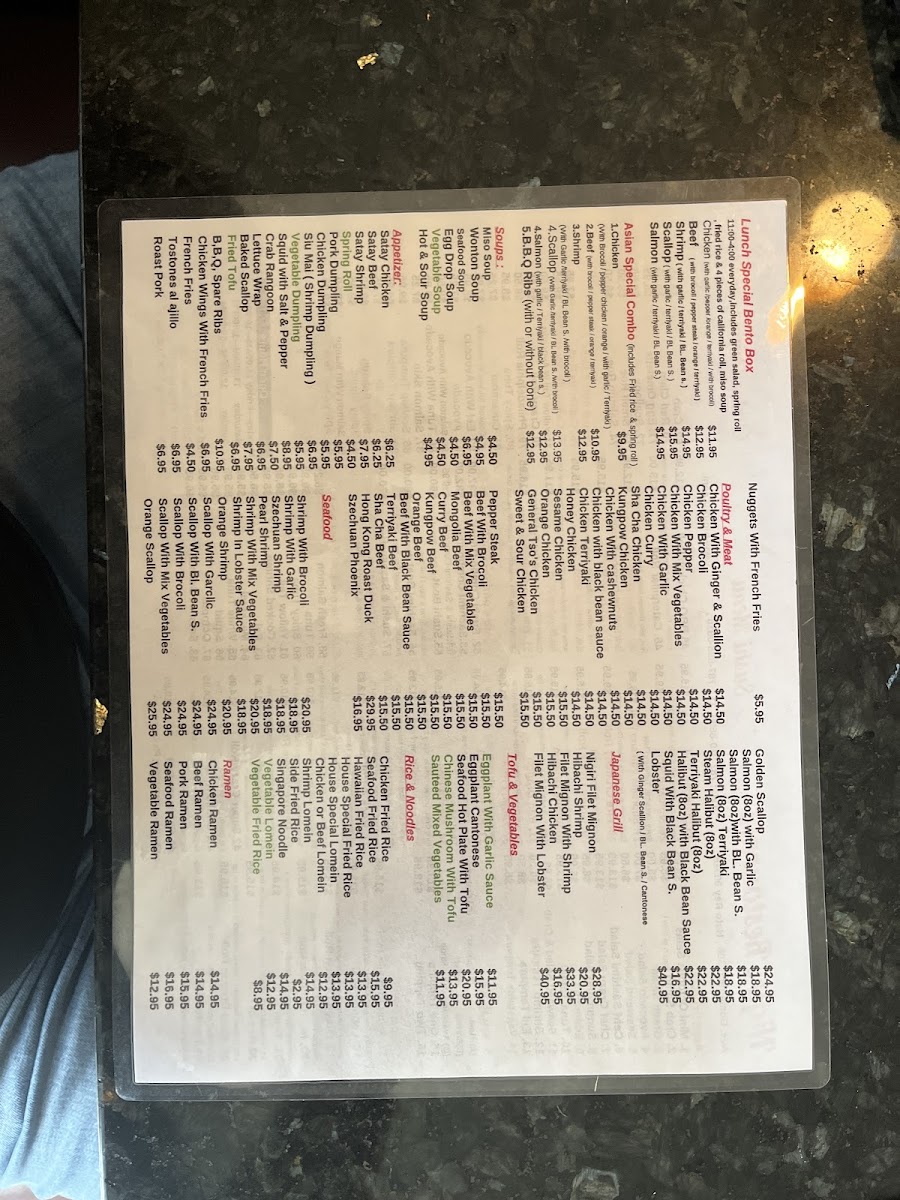 Lunch Special Bento Box
11:00-4:00 everyday,Includes green salad, spring roll
, fried rice & 4 pieces of california roll, miso soup
Chicken (with garlic /pepper /orange / terriyaki / with brocoli) $11.95
Beef ( with brocoli / pepper steak / orange / terriyaki) $12.95
Shrimp ( with garlic / terriyaki / BL. Bean s.) $14.95
Scallop ( with garlic / terriyaki / BL Bean S. ) $15.95
Salmon (with garlic / terriyaki / BL Bean S.) $14.95
Asian Special Combo (includes Fried rice & spring roll )
1.Chicken $9.95
(with Brocoli / pepper chicken / orange / with garlic / Terriyaki )
2.Beef (with brocoli / pepper steak / orange / terriyaki ) $10.95
3.Shrimp $12.95
(with Garlic /terriyaki / BL Bean S. /with brocoli )
4.Scallop (with Garlic /terriyaki / BL Bean S. /with brocoli ) $13.95
4.Salmon (with garlic / Terriyaki / black bean s. ) $12.95
5.B.B.Q Ribs (with or without bone) $12.95
Soups :
Miso Soup $4.50
Wonton Soup $4.95
Seafood Soup $6.95
Egg Drop Soup $4.50
Vegetable Soup $4.50
Hot & Sour Soup $4.95
Appetizer:
Satay Chicken $6.25
Satay Beef $6.25
Satay Shrimp $7.95
Spring Roll $4.50
Pork Dumpling $5.95
Chicken Dumpling $5.95
Siu Mai ( Shrimp Dumpling ) $6.95
Vegetable Dumpling $5.95
Squid with Salt & Pepper $8.95
Crab Rangoon $7.50
Lettuce Wrap $6.95
Baked Scallop $7.95
Fried Tofu $6.95
B.B,Q, Spare Ribs $10.95
Chicken Wings With French Fries $6.95
French Fries $4.50
Tostones al ajiilo $6.95
Roast Pork $6.95
Nuggets With French Fries $5.95
Poultry & Meat
Chicken With Ginger & Scallion $14.50
Chicken Brocoli $14.50
Chicken Pepper $14.50
Chicken With Mix Vegetables $14.50
Chicken With Garlic $14.50
Chicken Curry $14.50
Sha Cha Chicken $14.50
Kungpow Chicken $14.50
Chicken With cashewnuts $14.50
Chicken with black bean sauce $14.50
Chicken Terriyaki $14.50
Honey Chicken $14.50
Sesame Chicken $15.50
Orange Chicken $15.50
General Tso's Chicken $15.50
Sweet & Sour Chicken $15.50
Pepper Steak $15.50
Beef With Brocoli $15.50
Beef With Mix Vegetables $15.50
Mongolia Beef $15.50
Curry Beef $15.50
Kungpow Beef $15.50
Orange Beef $15.50
Beef With Black Bean Sauce $15.50
Terriyaki Beef $15.50
Sha Cha Beef $15.50
Hong Kong Roast Duck $29.95
Szechuan Phoenix $16.95
Seafood
Shrimp With Brocoli $20.95
Shrimp With Garlic $18.95
Szechuan Shrimp $18.95
Pearl Shrimp $18.95
Shrimp With Mix Vegetables $20.95
Shrimp In Lobster Sauce $18.95
Orange Shrimp $20.95
Scallop With Garclic $24.95
Scallop With Bl. Bean S. $24.95
Scallop With Brocoli $24.95
Scallop With Mix Vegetables $24.95
Orange Scallop $25.95
Golden Scallop $24.95
Salmon (8oz) with Garlic $18.95
Salmon (8oz)with BL. Bean S. $18.95
Salmon (8oz) Terriyaki $18.95
Steam Halibut (8oz) $22.95
Terriyaki Halibut (8oz) $22.95
Halibut (8oz) with Black Bean Sauce $22.95
Squid With Black Bean S. $16.95
Lobster $40.95
( With Ginger Scallion / BL. Bean S. / Cantonese
Japanese Grill
Nigiri Filet Mignon $28.95
Hibachi Shrimp $20.95
Filet Mignon With Shrimp $33.95
Hibachi Chicken $16.95
Filet Mignon With Lobster $40.95
Tofu & Vegetables
Eggplant With Garlic Sauce $11.95
Eggplant Cantonese $15.95
Seafood Hot Plate With Tofu $20.95
Chinese Mushroom With Tofu $13.95
Sauteed Mixed Vegetables $11.95
Rice & Noodles
Chicken Fried Rice $9.95
Seafood Fried Rice $15.95
Hawaiian Fried Rice $13.95
House Special Fried Rice $13.95
House Special Lomein $13.95
Chicken or Beef Lomein $12.95
Shrimp Lomein $14.95
Side Fried Rice $2.95
Singapore Noodle $14.95
Vegetable Lomein $12.95
Vegetable Fried Rice $8.95
Ramen
Chicken Ramen $14.95
Beef Ramen $14.95
Pork Ramen $15.95
Seafood Ramen $16.95
Vegetable Ramen $12.95